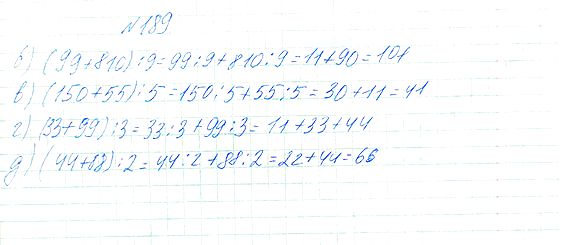 №189
б) (99+810):9=99:9+810:9=11+90=101
в) (150+55):5=150:5+55:5=30+11=41
г) (33+99):3=33:3+99:3=11+33+44
д) (44+88):2=44:2+88:2=22+44=66